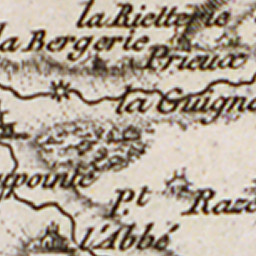 la Rietterie
la Bergerie
Prieux
la Guign
pointe
p.t
Raz
l'Abbé